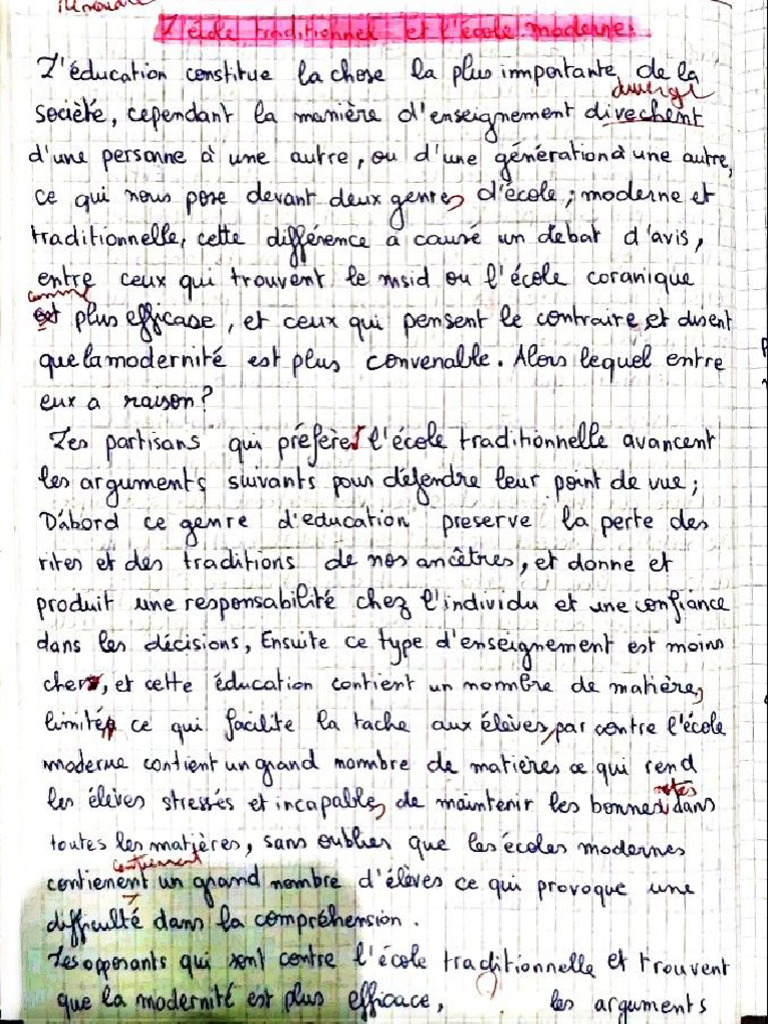 L'école traditionnel et l'école moderne.
L'éducation constitue la chose la plus importante de la
diverge
société, cependant la manière d'enseignement divechent
d'une personne à une autre, ou d'une génération à une autre,
ce qui nous pose devant deux genres d'école ; moderne et
traditionnelle, cette différence a causé un debat d'avis,
entre ceux qui trouvent le msid ou l'école coranique
comme
est plus efficase, et ceux qui pensent le contraire, et disent
que la modernité est plus convenable. Alors lequel entre
eux a raison ?
Les partisans qui préfères l'école traditionnelle avancent
les arguments suivants pour défendre leur point de vue ;
D'abord ce genre d'education preserve la perte des
rites et des traditions de nos ancêtres, et donne et
produit une responsabilité chez l'individu et une confiance
dans les décisions, Ensuite ce type d'enseignement est moins
cher, et cette éducation contient un nombre de matières
limités ce qui facilite la tache aux élèves, par contre l'école
moderne contient un grand nombre de matières ce qui rend
notes
les élèves stressés et incapables de maintenir les bonnes dans
toutes les matières, sans oublier que les écoles modernes
contiennent
contienent un grand nombre d'élèves ce qui provoque une
difficulté dans la compréhension.
Les opposants qui sont contre l'école traditionnelle et trouvent
que la modernité est plus efficace, les arguments